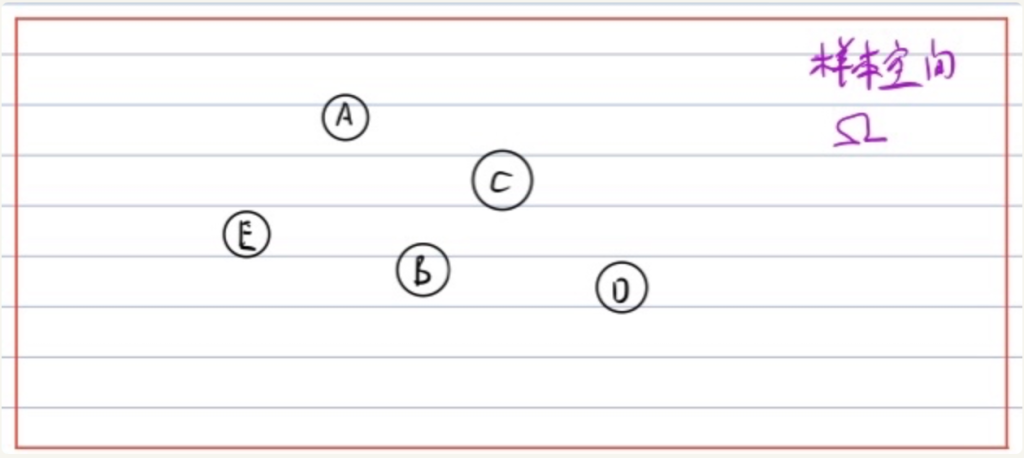 样本空间
Ω
A
C
E
B
D